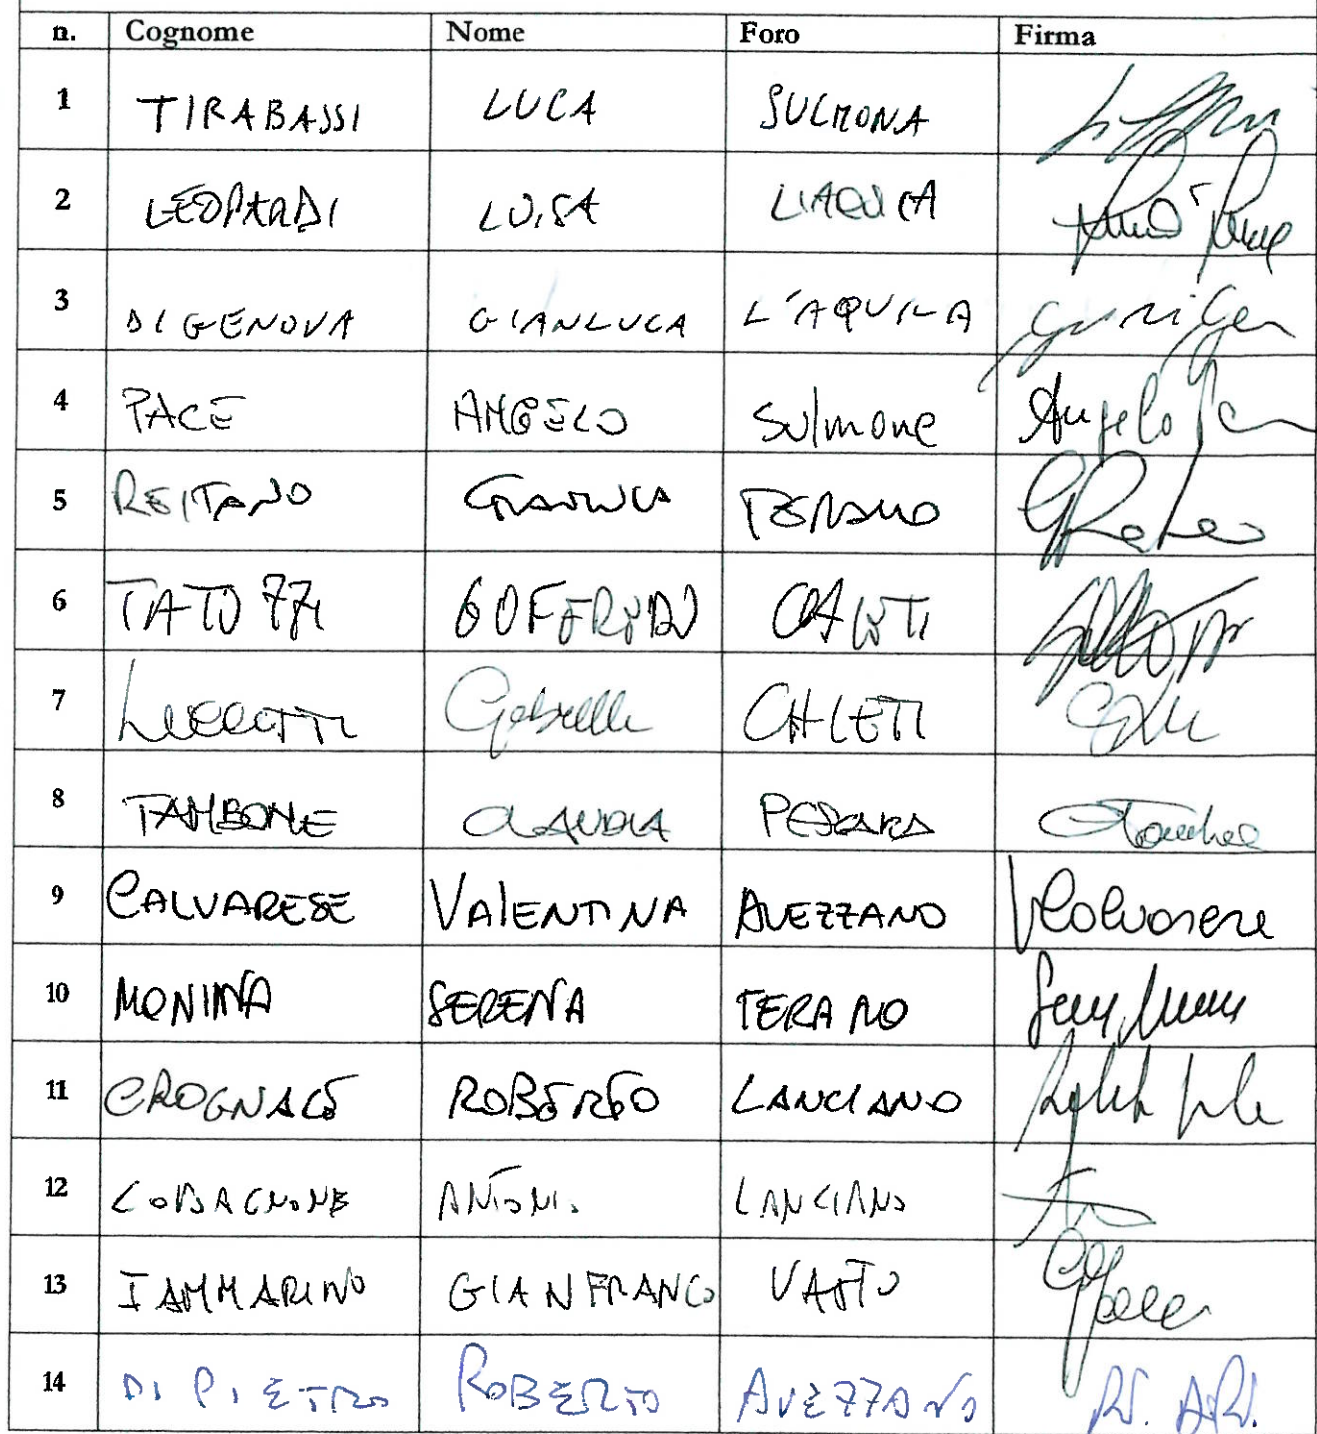 n. Cognome Nome Foro Firma
1 TIRABASSI LUCA SULMONA
2 LEOPARDI LUISA L'AQUILA
3 DI GENOVA GIANLUCA L'AQUILA
4 PACE ANGELO Sulmone Angelo
5 REITANO GIANLUCA TERAMO
6 TATOZZI GOFFREDO CHIETI
7 Gabrielle CHIETI
8 TAMBONE CLAUDIA PESCARA
9 CALVARESE VALENTINA AVEZZANO
10 MONINA SERENA TERAMO
11 CROGNALE ROBERTO LANCIANO
12 CODAGNONE ANTONI. LANCIANO
13 IAMMARINO GIANFRANCO VASTO
14 DI PIETRO ROBERTO AVEZZANO